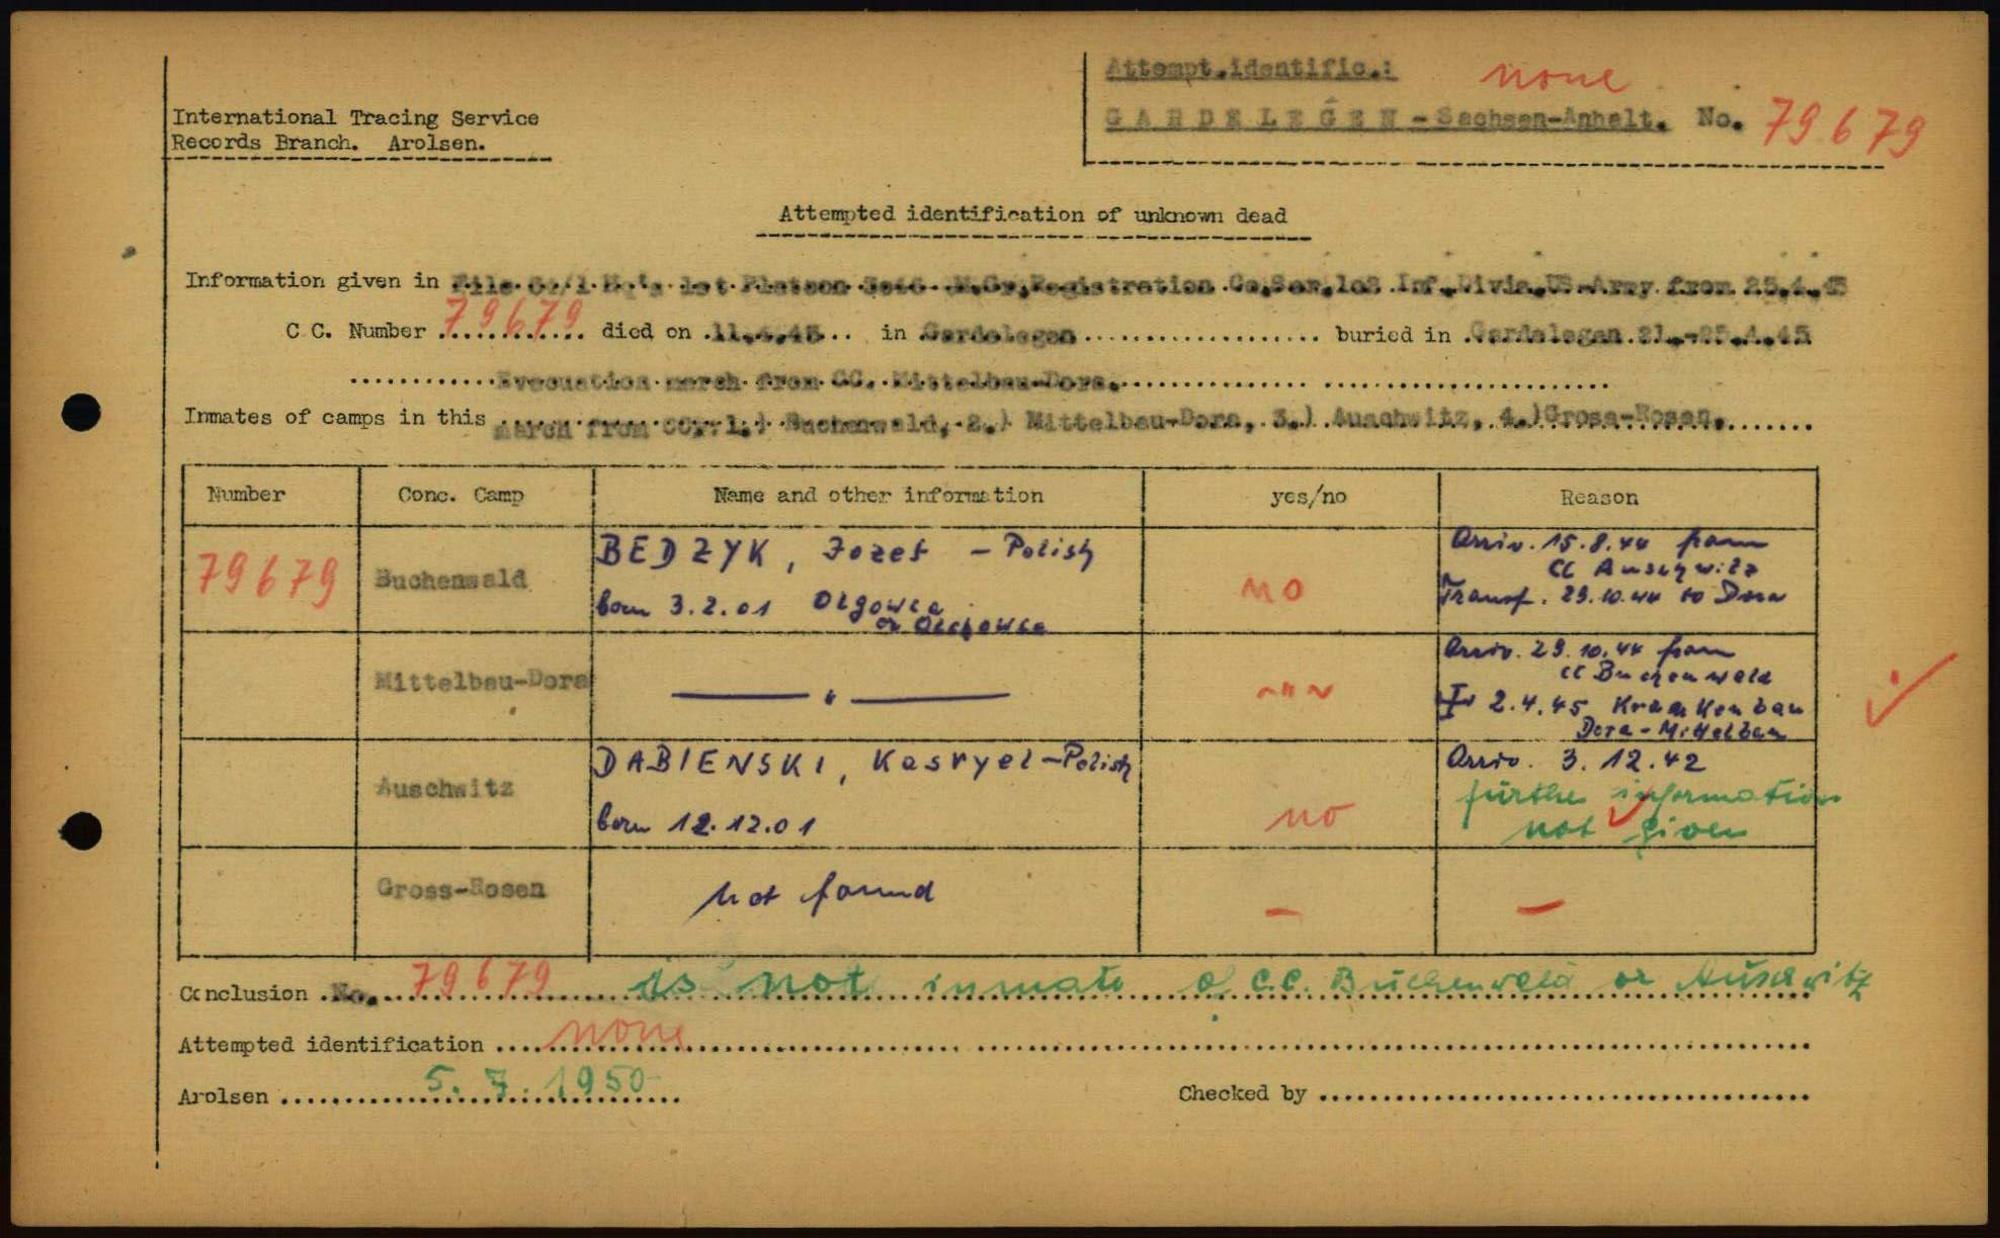 International Tracing Service
Records Branch. Arolsen.
Attempt.identific.: none
GARDELEGEN - Sachsen-Anhalt. No. 79679
Attempted identification of unknown dead
Information given in File 1st Platoon Registration Co, 102 Inf. US-Army from 25.4.45
C C. Number 79679 died on 11.4.45 in Gardelegen buried in Gardelegen 21.-25.4.45
Evacuation march from CC. Mittelbau-Dora.
Inmates of camps in this march from CC: 1.) Buchenwald, 2.) Mittelbau-Dora, 3.) Auschwitz, 4.)Gross-Rosen.
Number Conc. Camp Name and other information yes/no Reason
79679 Buchenwald BEDZYK, Jozef - Polish
born 3.2.01 Olgowca
or
no
Arriv. 15.8.44 from
CC Auschwitz
Transf. 29.10.44 to Dora
Mittelbau-Dora — " — ~"~
Arriv. 29.10.44 from
CC Buchenwald
2.4.45 Krankenbau
Dora-Mittelbau
Auschwitz DABIENSKI, Kasryel - Polish
born 12.12.01
no
Arriv. 3.12.42
further information
not given
Gross-Rosen not found — —
Conclusion No. 79679 is not inmate of C.C. Buchenwald or Auschwitz
Attempted identification none
Arolsen 5.7.1950 Checked by